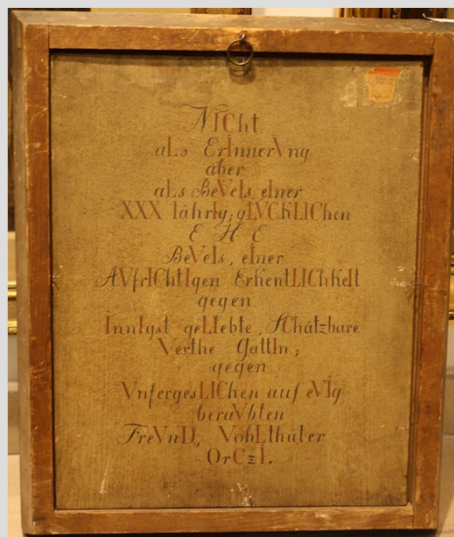 NICht
aLs ErInnerVng
aber
aLs BeVeIs, eIner
XXX Iährig; gLVCkLIChen
E H E
BeVeIs, eIner
AVfrIChtIgen ErkentLIChkeIt
gegen
InnIgst geLIebte, SChätzbare
Verthe GattIn;
gegen
VnsergesLIChen auf eVIg
beraVbten
FreVnD, VohLthäter
OrCzI.